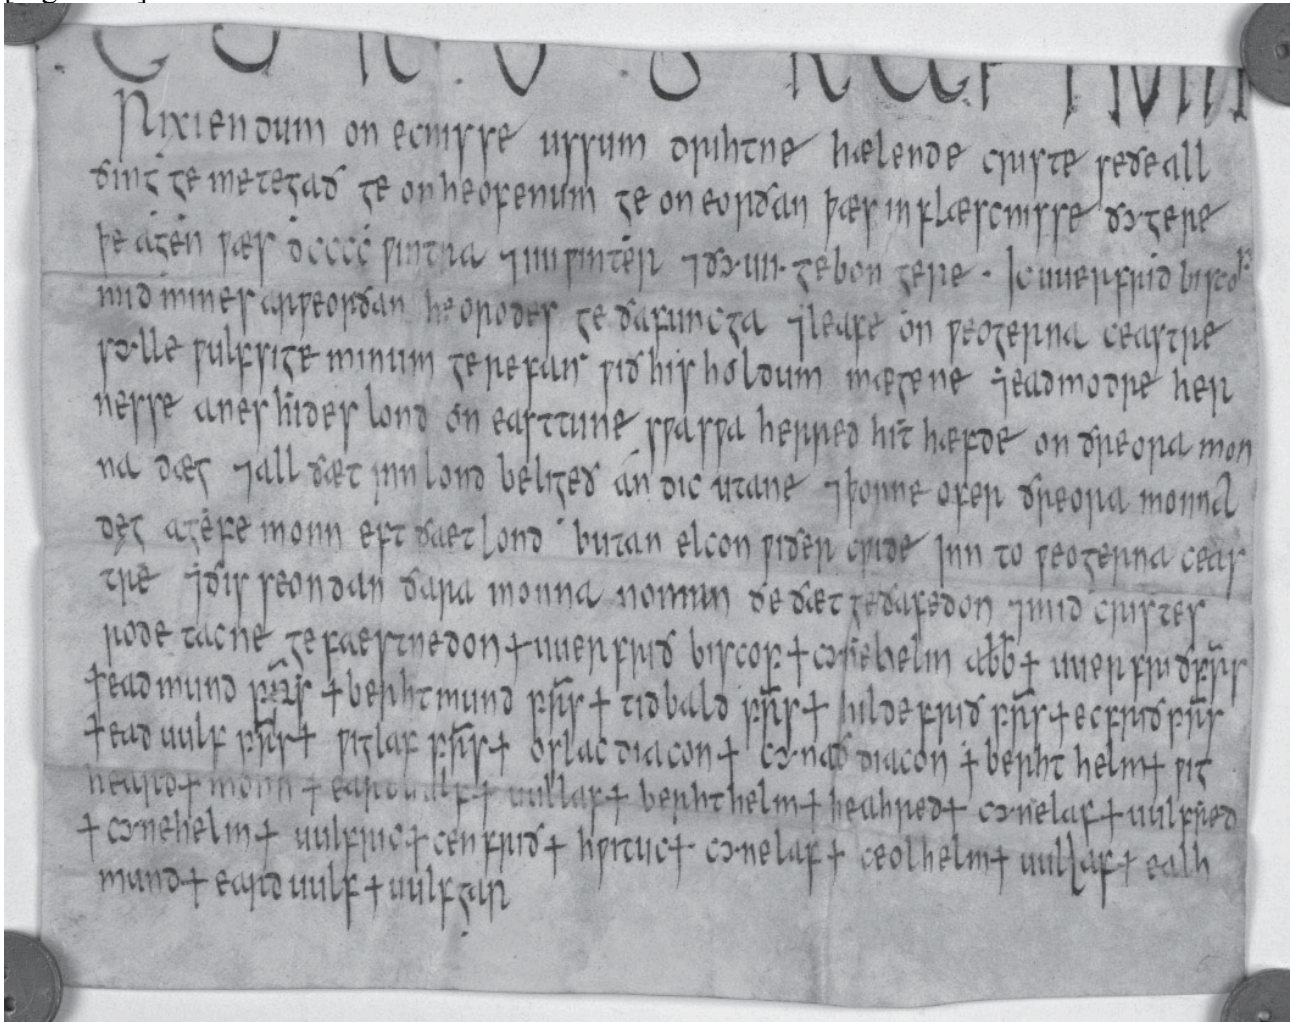 Rixiendum on ecnisse ussum drihtne hælende criste seðe all
ðing gemetegað ge on heofenum ge on eorðan þæs inflæscnisse ðy gere
þe agen wæs dcccc wintra ⁊ iiii winter ⁊ ðy .uii. gebon gere. Ic uuerfrið biscop
mid mines arweorðan heorodes geðafuncga ⁊ leafe on weogerna ceastre
sylle wulfsige minum gerefan wið his holdum mægene ⁊ eadmodre her
nesse anes hides lond on easttune swa swa herred hit hæfde on ðreora mon
na dæg ⁊ all ðæt innlond beligeð an dic utane ⁊ þonne ofer ðreora monna
deg agefe monn eft ðaet lond butan elcon wiðer cwide inn to weogerna ceas
tre ⁊ ðis seondan ðara monna noman ðe ðæt geðafedon ⁊ mid cristes
rode tacne gefaestnedon + uuerfrið biscop + cynehelm abb + uuerfrið prs
+ eadmund prs + berhtmund prs + tidbald prs + hildefrið prs + ecfrið prs
+ eaduulf prs + wiglaf prs + oslac diacon + cynað diacon + berhthelm + wig
heard + monn + earduulf + uullaf + berhthelm + heahred + cynelaf + uulfred
+ cynehelm + uulfric + cenfrið + hwituc + cynelaf + ceolhelm + uullaf + ealh
mund + earduulf + uulfgar